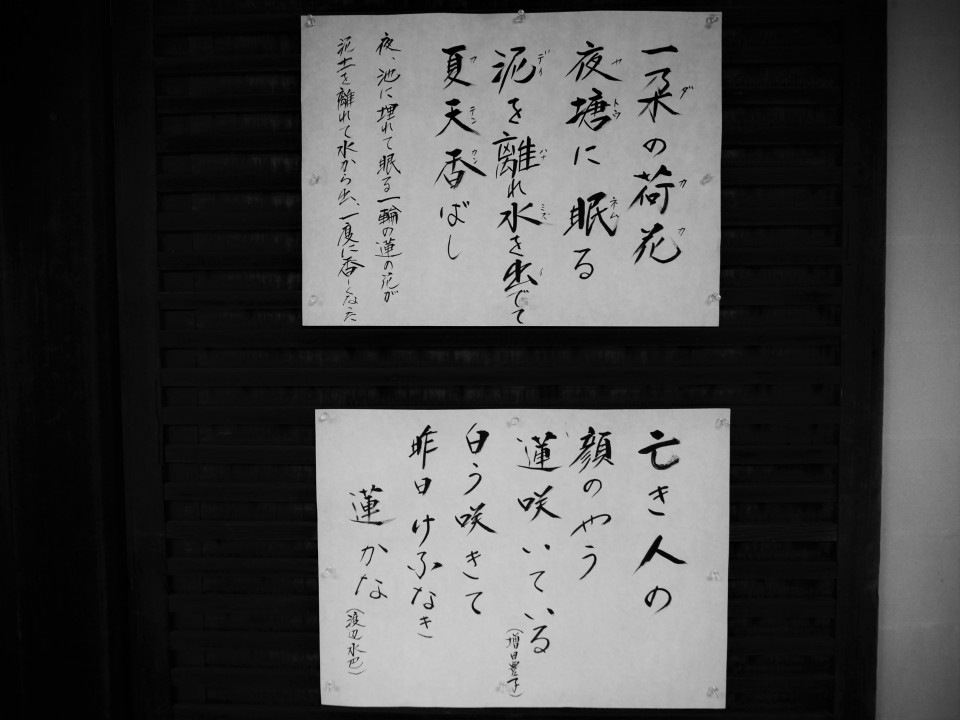 一朶の荷花
夜塘に眠る
泥を離れ水を出でて
夏天香ばし
夜、池に埋れて眠る一輪の蓮の花が
泥土を離れて水から出、一度に香しくなった
亡き人の
顔のやう
蓮咲いている
(増田豊子)
白う咲きて
昨日けふなき
蓮かな
(渡辺水巴)